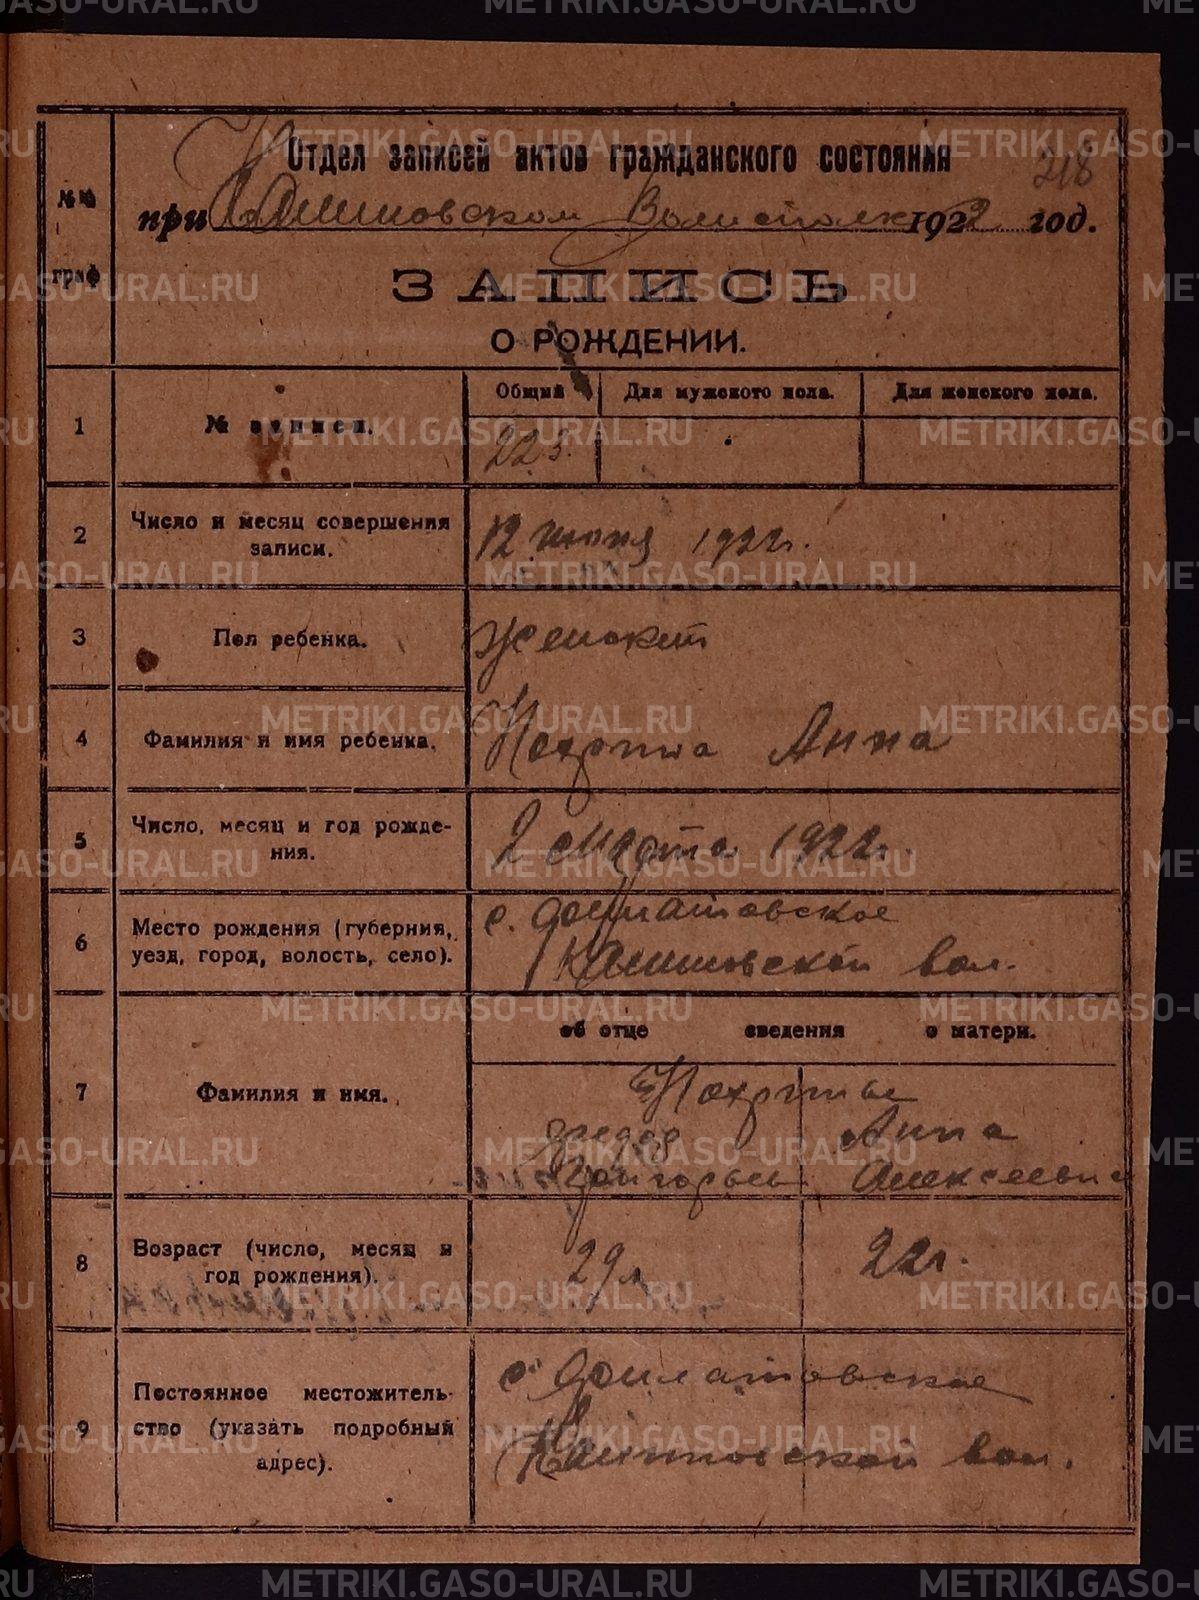 218
Отдел записей актов гражданского состояния
при Камышовском Волисполк 1922 год.
№№ граф
ЗАПИСЬ
О РОЖДЕНИИ.
1 № записи. Общий Для мужского пола. Для женского пола.
223.
2 Число и месяц совершения записи. 12 июня 1922 г.
3 Пол ребенка. Женский
4 Фамилия и имя ребенка. Анна
5 Число, месяц и год рожде-
ния. 2 Марта 1922 г.
6 Место рождения (губерния,
уезд, город, волость, село). с.
вол.
об отце сведения о матери.
7 Фамилия и имя.
Федор Анна
Григорьев Алексеевна
8 Возраст (число, месяц и
год рождения). 29 л 22 г.
9 Постоянное местожитель-
ство (указать подробный
адрес). с.
вол.
METRIKI.GASO-URAL.RU